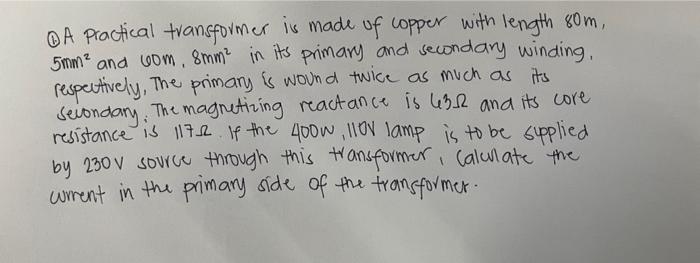 ① A Practical transformer is made of copper with length 80m,
5mm² and 60m, 8mm² in its primary and secondary winding,
respectively, The primary is wound twice as much as its
secondary. The magnetizing reactance is 63Ω and its core
resistance is 117Ω. If the 400W, 110V lamp is to be supplied
by 230V source through this transformer, Calculate the
current in the primary side of the transformer.